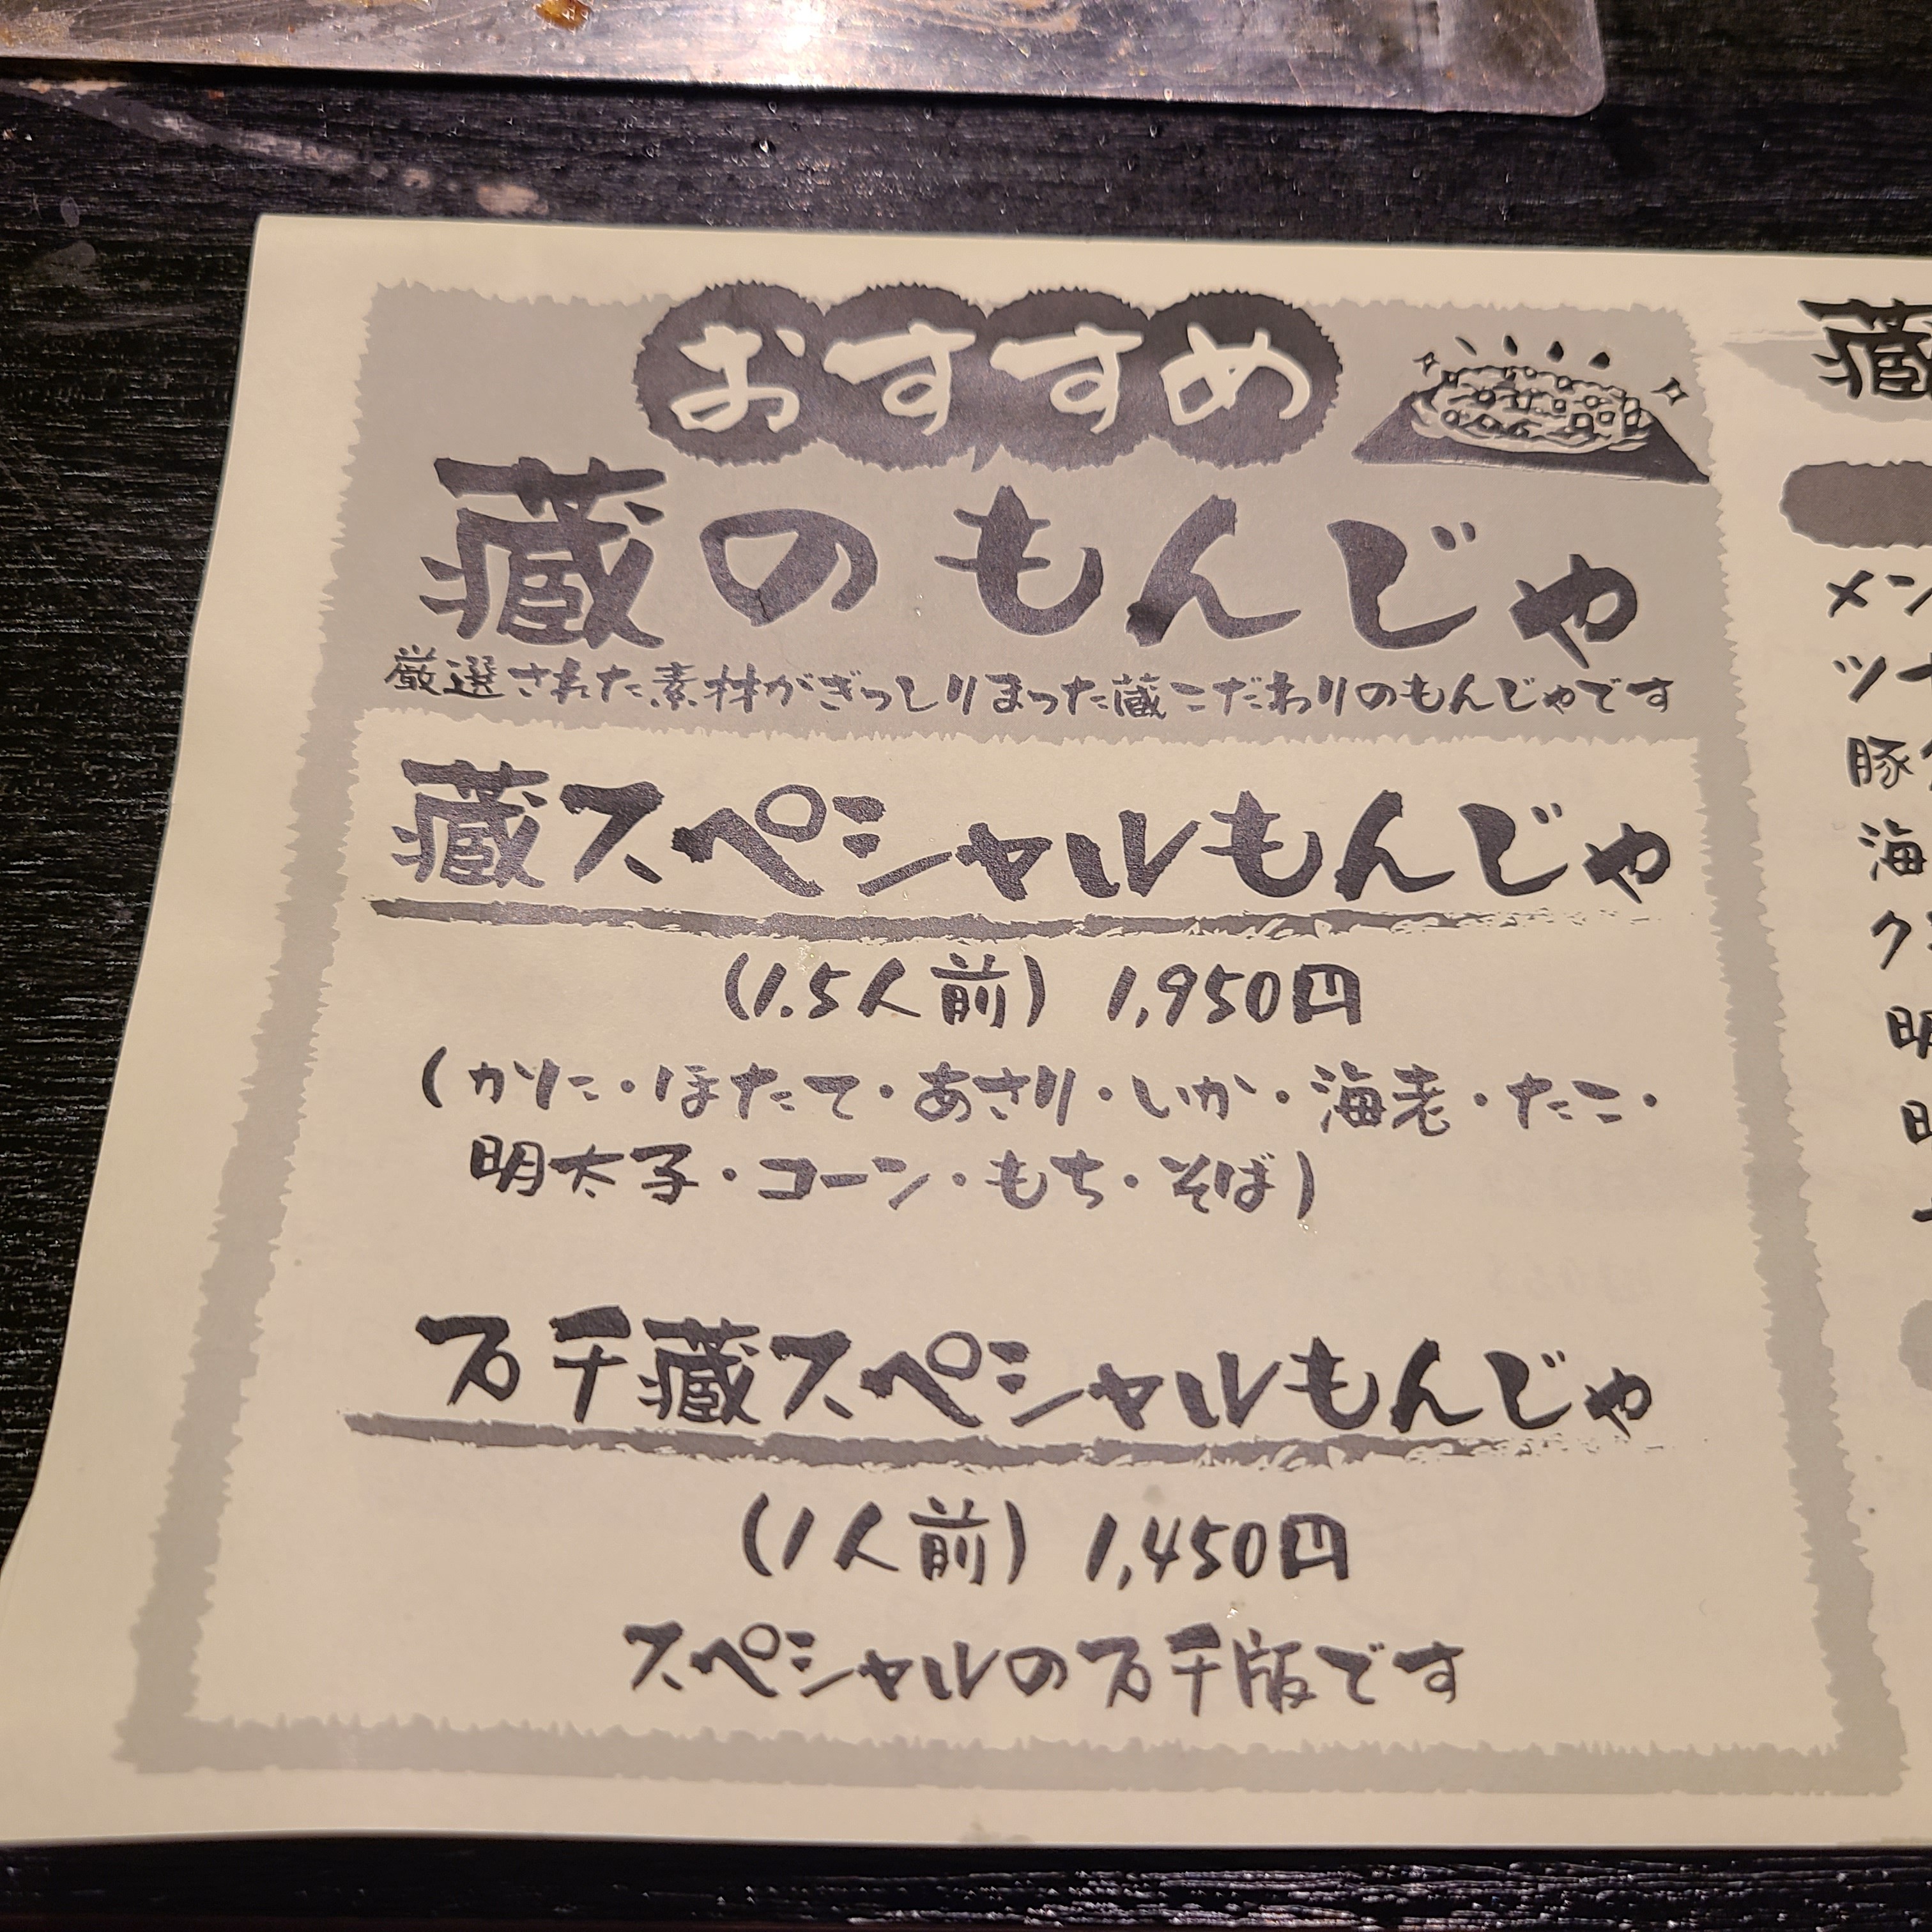 おすすめ
蔵のもんじゃ
厳選された素材がぎっしりまった蔵こだわりのもんじゃです
蔵スペシャルもんじゃ
(1.5人前) 1,950円
(かに・ほたて・あさり・いか・海老・たこ・
明太子・コーン・もち・そば)
プチ蔵スペシャルもんじゃ
(1人前) 1,450円
スペシャルのプチ版です
蔵
メン
ツナ
豚
海
ク
明
明